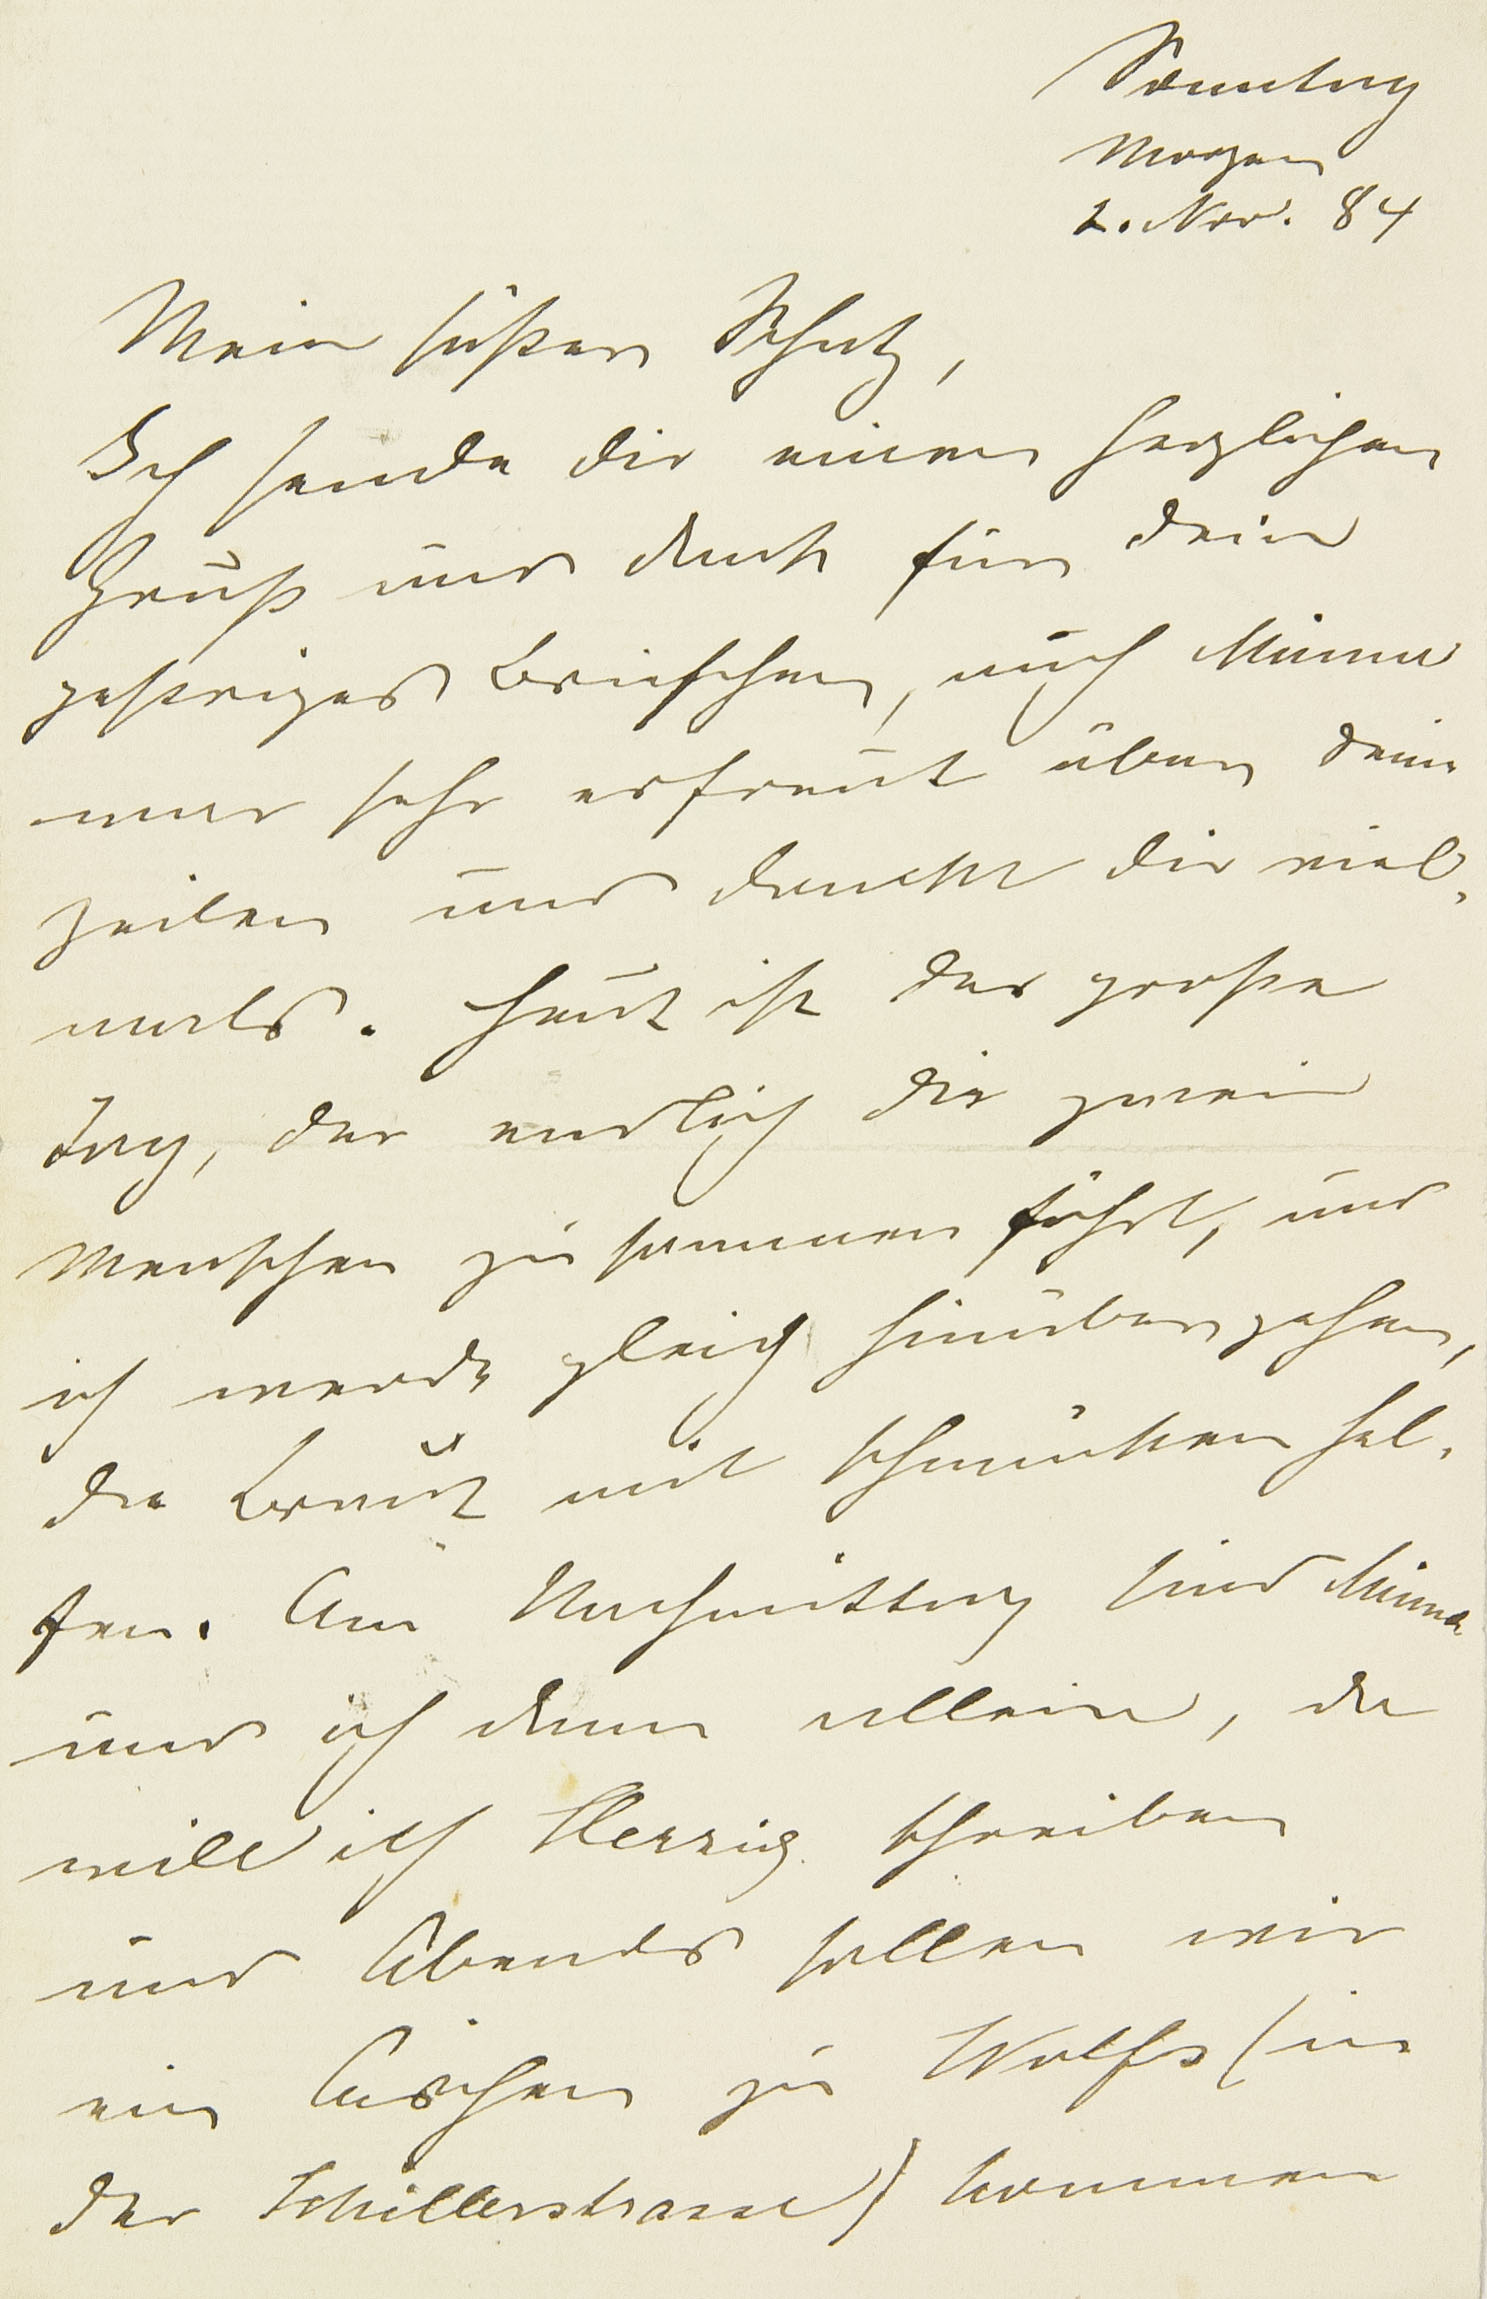 Sonntag
Morgen
2. Nov. 84
Mein süßer Schatz,
Ich sende dir einen herzlichen
Gruß und Dank für dein
gestriges Briefchen, auch Minna
war sehr erfreut über deine
Zeilen und dankt dir viel-
mals. Heut ist der große
Tag, der endlich die zwei
Menschen zusammen führt, und
ich werde gleich hinübergehen,
die Braut mit schmücken hel-
fen. Am Nachmittag sind Minna
und ich dann allein, da
will ich Herzig schreiben
und Abends sollen wir
ein bischen zu Wolfs (in
der Schillerstrasse) kommen